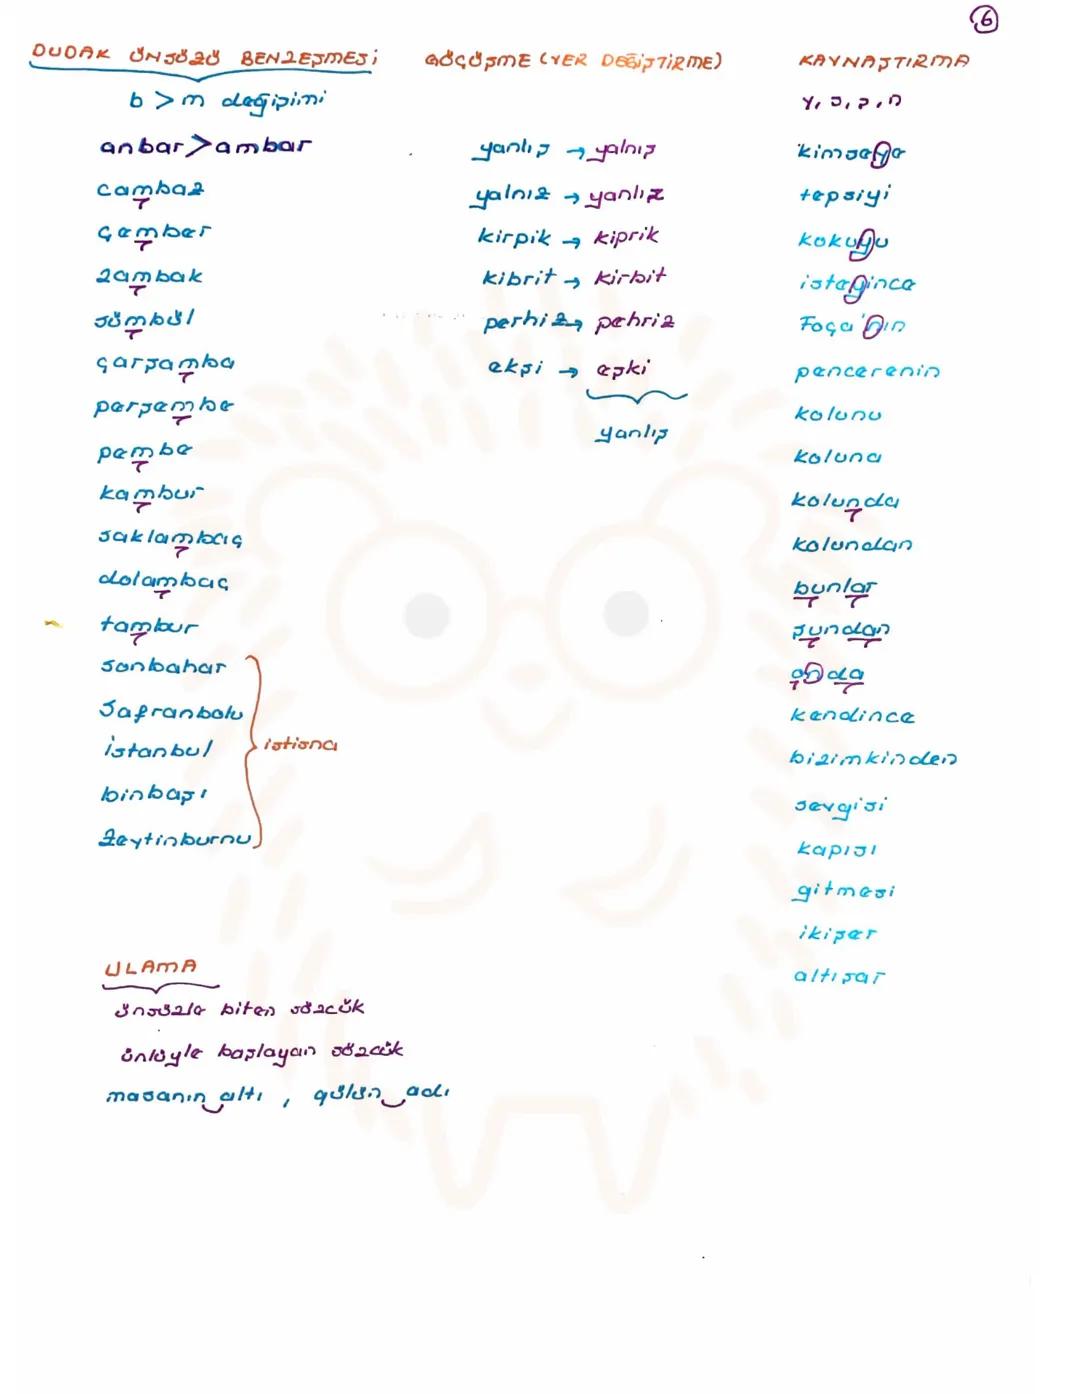 6
DUDAK ÜNSÜZÜ BENZEŞMESİ
b > m değişimi
anbar > ambar
cambaz
çember
zambak
sümbül
çarşamba
perşembe
pembe
kambur
saklambaç
dolambaç
tambur
sonbahar
Safranbolu
istanbul
binbaşı
Zeytinburnu
istisna
ULAMA
ünsüzle biten sözcük
ünlüyle başlayan sözcük
masanın altı , gülün adı
GÖÇÜŞME (YER DEĞİŞTİRME)
yanlış → yalnış
yalnız → yanlız
kirpik → kiprik
kibrit → kirbit
perhiz → pehriz
ekşi → eşki
yanlış
KAYNAŞTIRMA
y, s, ş, n
kimseye
tepsiyi
kokuyu
isteyince
Foça'nın
pencerenin
kolunu
koluna
kolunda
kolundan
bunlar
şundan
onda
kendince
bizimkinden
sevgisi
kapısı
gitmesi
ikişer
altışar